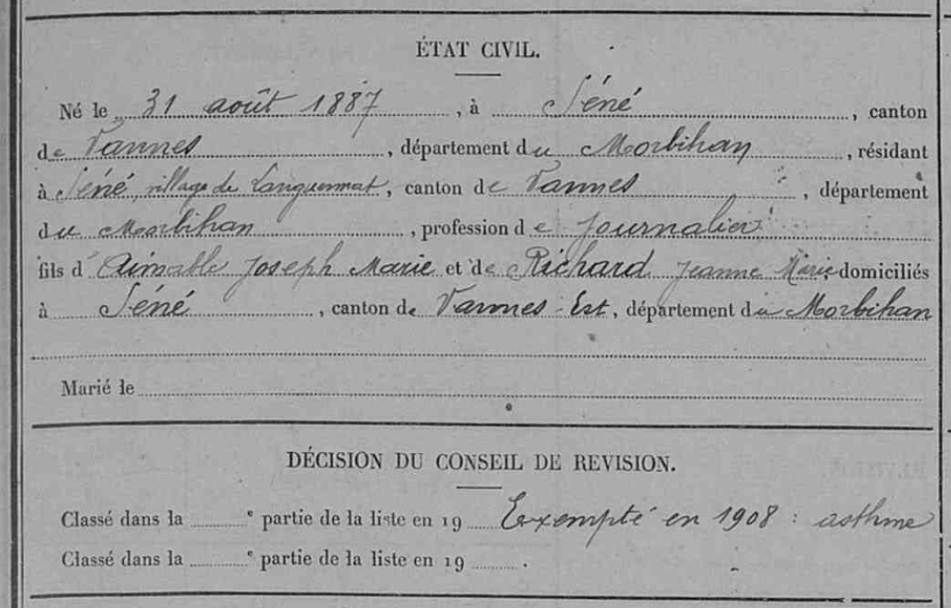 ÉTAT CIVIL.
Né le 31 août 1887, à Séné, canton
de Vannes, département du Morbihan, résidant
à Séné, village de Languernat, canton de Vannes, département
du Morbihan, profession de journalier
fils d'Aimable Joseph Marie et de Richard Jeanne Marie domiciliés
à Séné, canton de Vannes-Est, département du Morbihan
Marié le
DÉCISION DU CONSEIL DE REVISION.
Classé dans la e partie de la liste en 19 Exempté en 1908 : asthme
Classé dans la e partie de la liste en 19 .